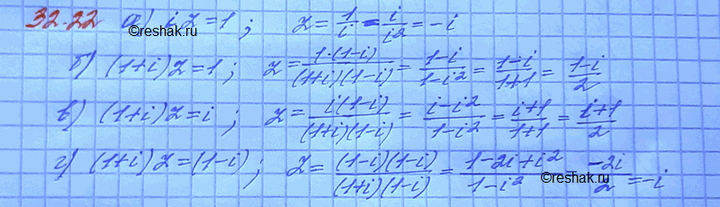 32.22 а) iz=1; z=\frac{1}{i}=\frac{i}{i^2}=-i
©reshak.ru
б) (1+i)z=1; z=\frac{1·(1-i)}{(1+i)(1-i)}=\frac{1-i}{1-i^2}=\frac{1-i}{1+1}=\frac{1-i}{2}
в) (1+i)z=i; z=\frac{i(1-i)}{(1+i)(1-i)}=\frac{i-i^2}{1-i^2}=\frac{i+1}{1+1}=\frac{i+1}{2}
г) (1+i)z=(1-i); z=\frac{(1-i)(1-i)}{(1+i)(1-i)}=\frac{1-2i+i^2}{1-i^2} \frac{-2i}{2}=-i
©reshak.ru